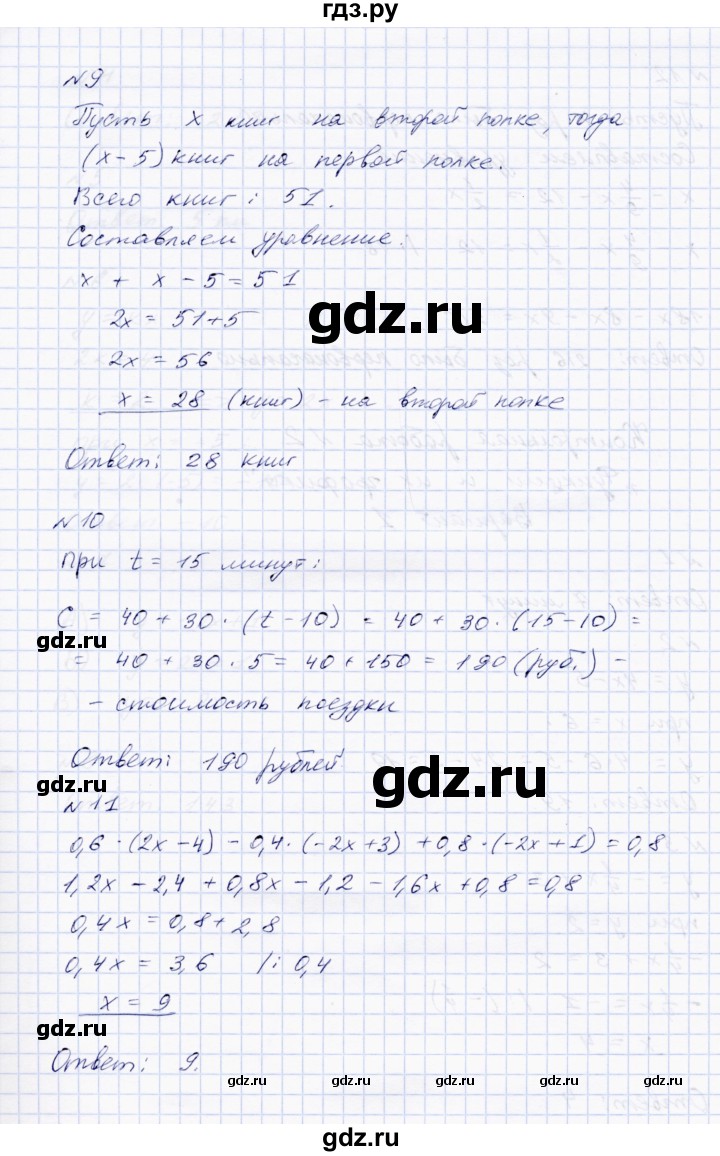 гдз.ру
№9
Пусть x книг на второй полке, тогда
(x-5) книг на первой полке.
Всего книг: 51.
Составляем уравнение.
x + x - 5 = 51
2x = 51+5
2x = 56
x = 28 (книг) - на второй полке
gdz.ru
Ответ: 28 книг
№10
При t = 15 минут:
C = 40 + 30 · (t-10) = 40 + 30 · (15-10) =
gdz.ru
= 40 + 30 · 5 = 40 + 150 = 190 (руб.) -
- стоимость поездки
Ответ: 190 рублей
gdz.ru
gdz.ru
№11
0,6 · (2x-4) - 0,4 · (-2x+3) + 0,8 · (-2x+1) = 0,8
1,2x - 2,4 + 0,8x - 1,2 - 1,6x + 0,8 = 0,8
0,4x = 0,8 + 2,8
0,4x = 3,6 /: 0,4
x = 9
gdz.ru
Ответ: 9.
gdz.ru gdz.ru gdz.ru gdz.ru gdz.ru
gdz.ru